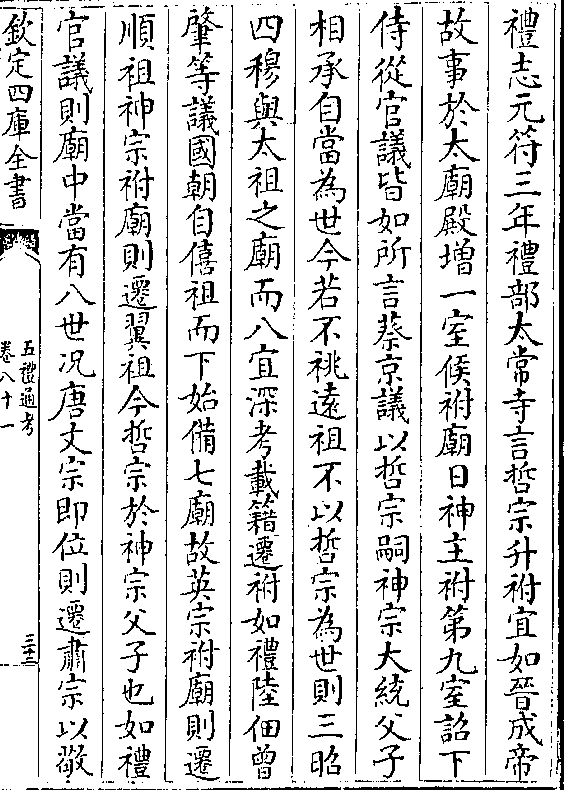 禮志元符三年禮部太常寺言哲宗升祔宜如晉成帝
故事於太廟殿增一室候祔廟日神主祔第九室詔下
侍從官議皆如所言蔡京議以哲宗嗣神宗大統父子
相承自當為世今若不祧遠祖不以哲宗為世則三昭
四穆與太祖之廟而八宜深考載籍遷祔如禮陸佃曾
肇等議國朝自僖祖而下始備七廟故英宗祔廟則遷
順祖神宗祔廟則遷翼祖今哲宗於神宗父子也如禮
官議則廟中當有八世况唐文宗即位則遷肅宗以敬
欽定四庫全書
五禮通考
卷八十一
三十三